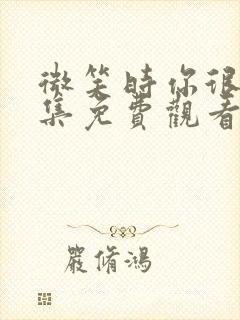 微笑時你很
集免費觀看
嚴脩鴻